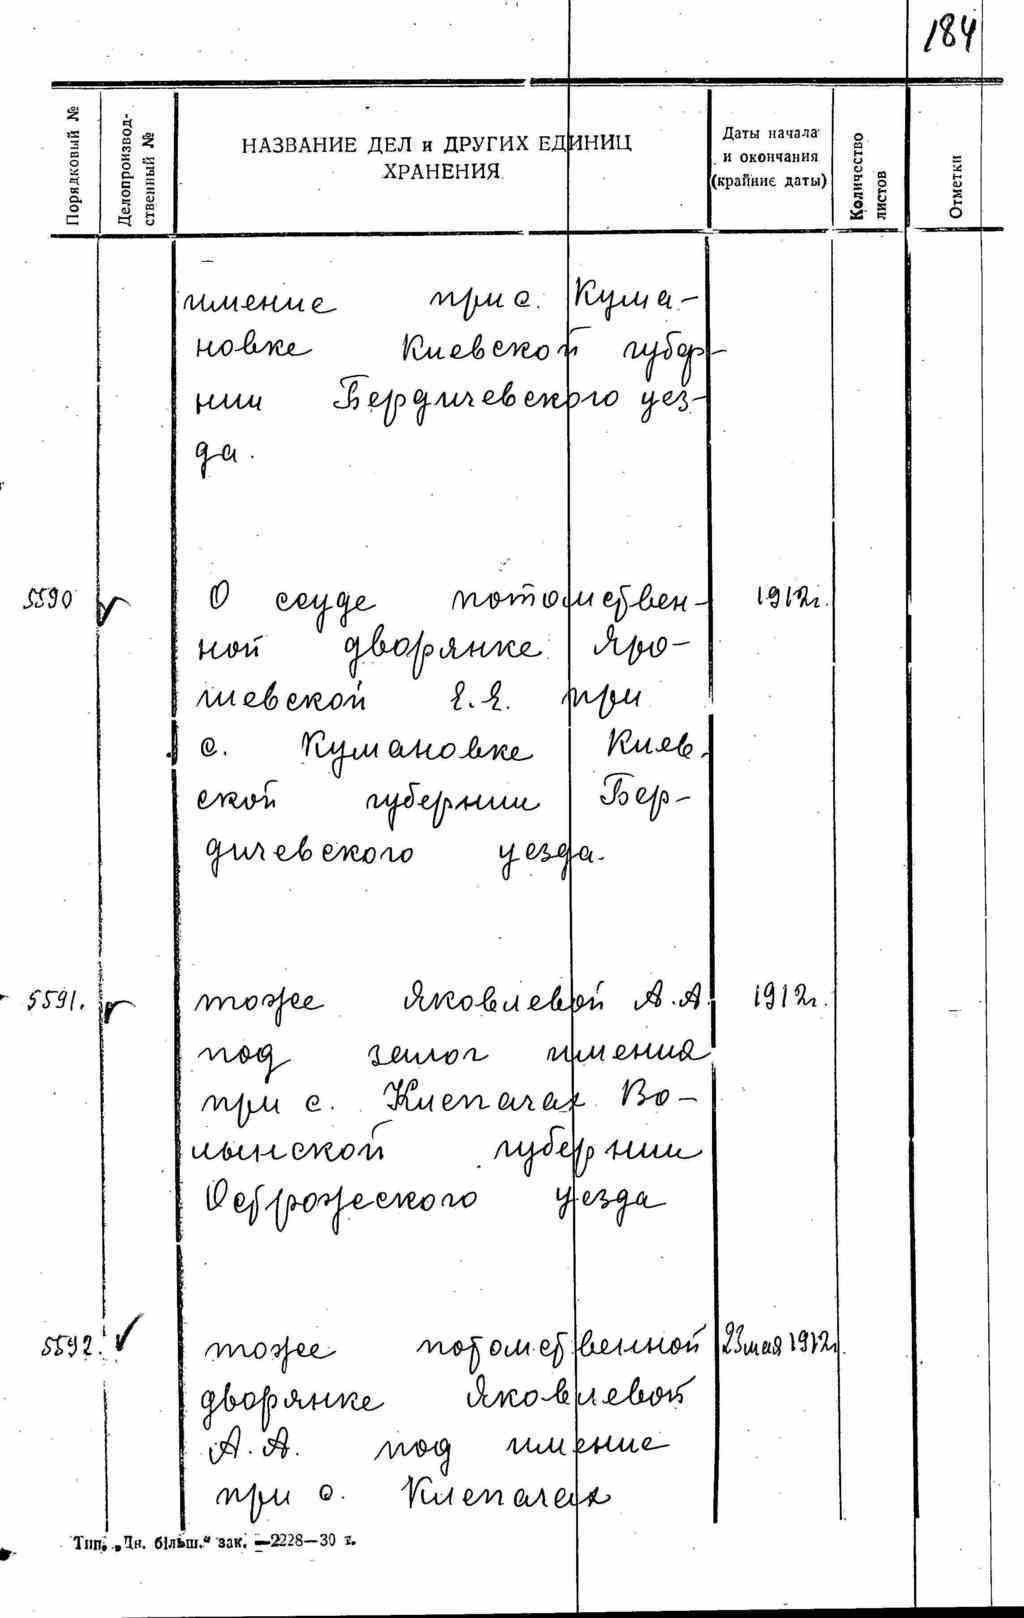 184
Порядковый №
Делопроизвод-
ственный №
НАЗВАНИЕ ДЕЛ и ДРУГИХ ЕДИНИЦ
ХРАНЕНИЯ
Даты начала
и окончания
(крайние даты)
Количество
листов
Отметки
имение при с. Кума-
новке Киевской губер-
нии Бердичевского уез-
да.
5590 О ссуде потомствен- 1912г.
ной дворянке Яро-
шевской Е.Я. при
с. Кумановке Киев-
ской губернии Бер-
дичевского уезда.
5591. тоже Яковлевой А.А. 1912г.
под залог имения
при с. Клепачах Во-
лынской губернии
Острожеского уезда
5592. тоже потомственной 23 мая 1912г.
дворянке Яковлевой
А.А. под имение
при с. Клепачах
Тип. „Дн. більш.“ зак. —2228—30 т.